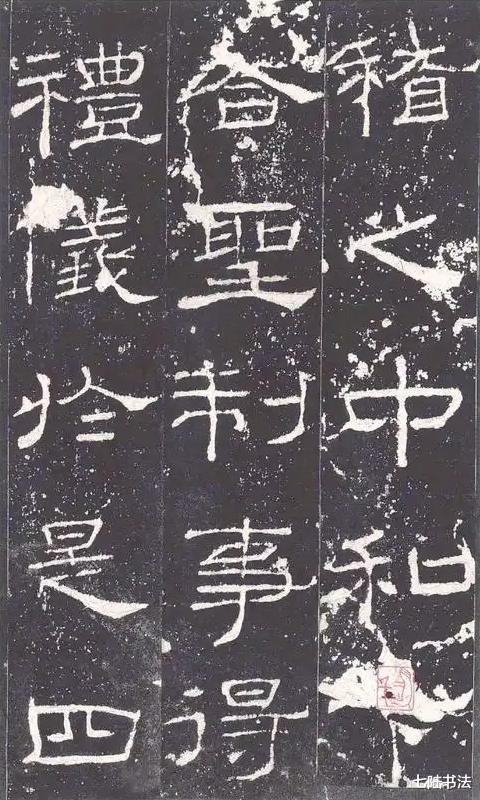 稽之中和下
合聖制事得
禮儀於是四
七陆书法